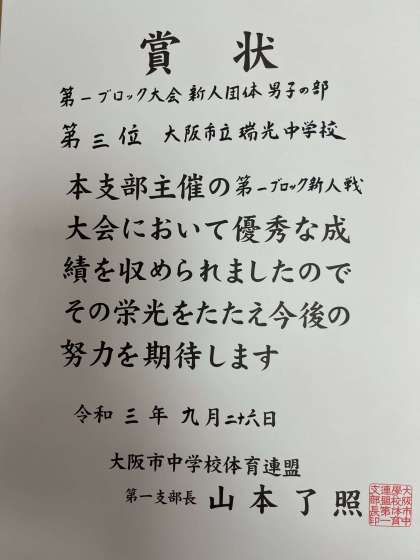 賞状
第一ブロック大会 新人団体 男子の部
第三位 大阪市立瑞光中学校
本支部主催の第一ブロック新人戦
大会において優秀な成
績を収められましたので
その栄光をたたえ今後の
努力を期待します
令和三年九月二十六日
大阪市中学校体育連盟
第一支部長 山本了照
大阪市中
學校体育
連盟第一
支部長印